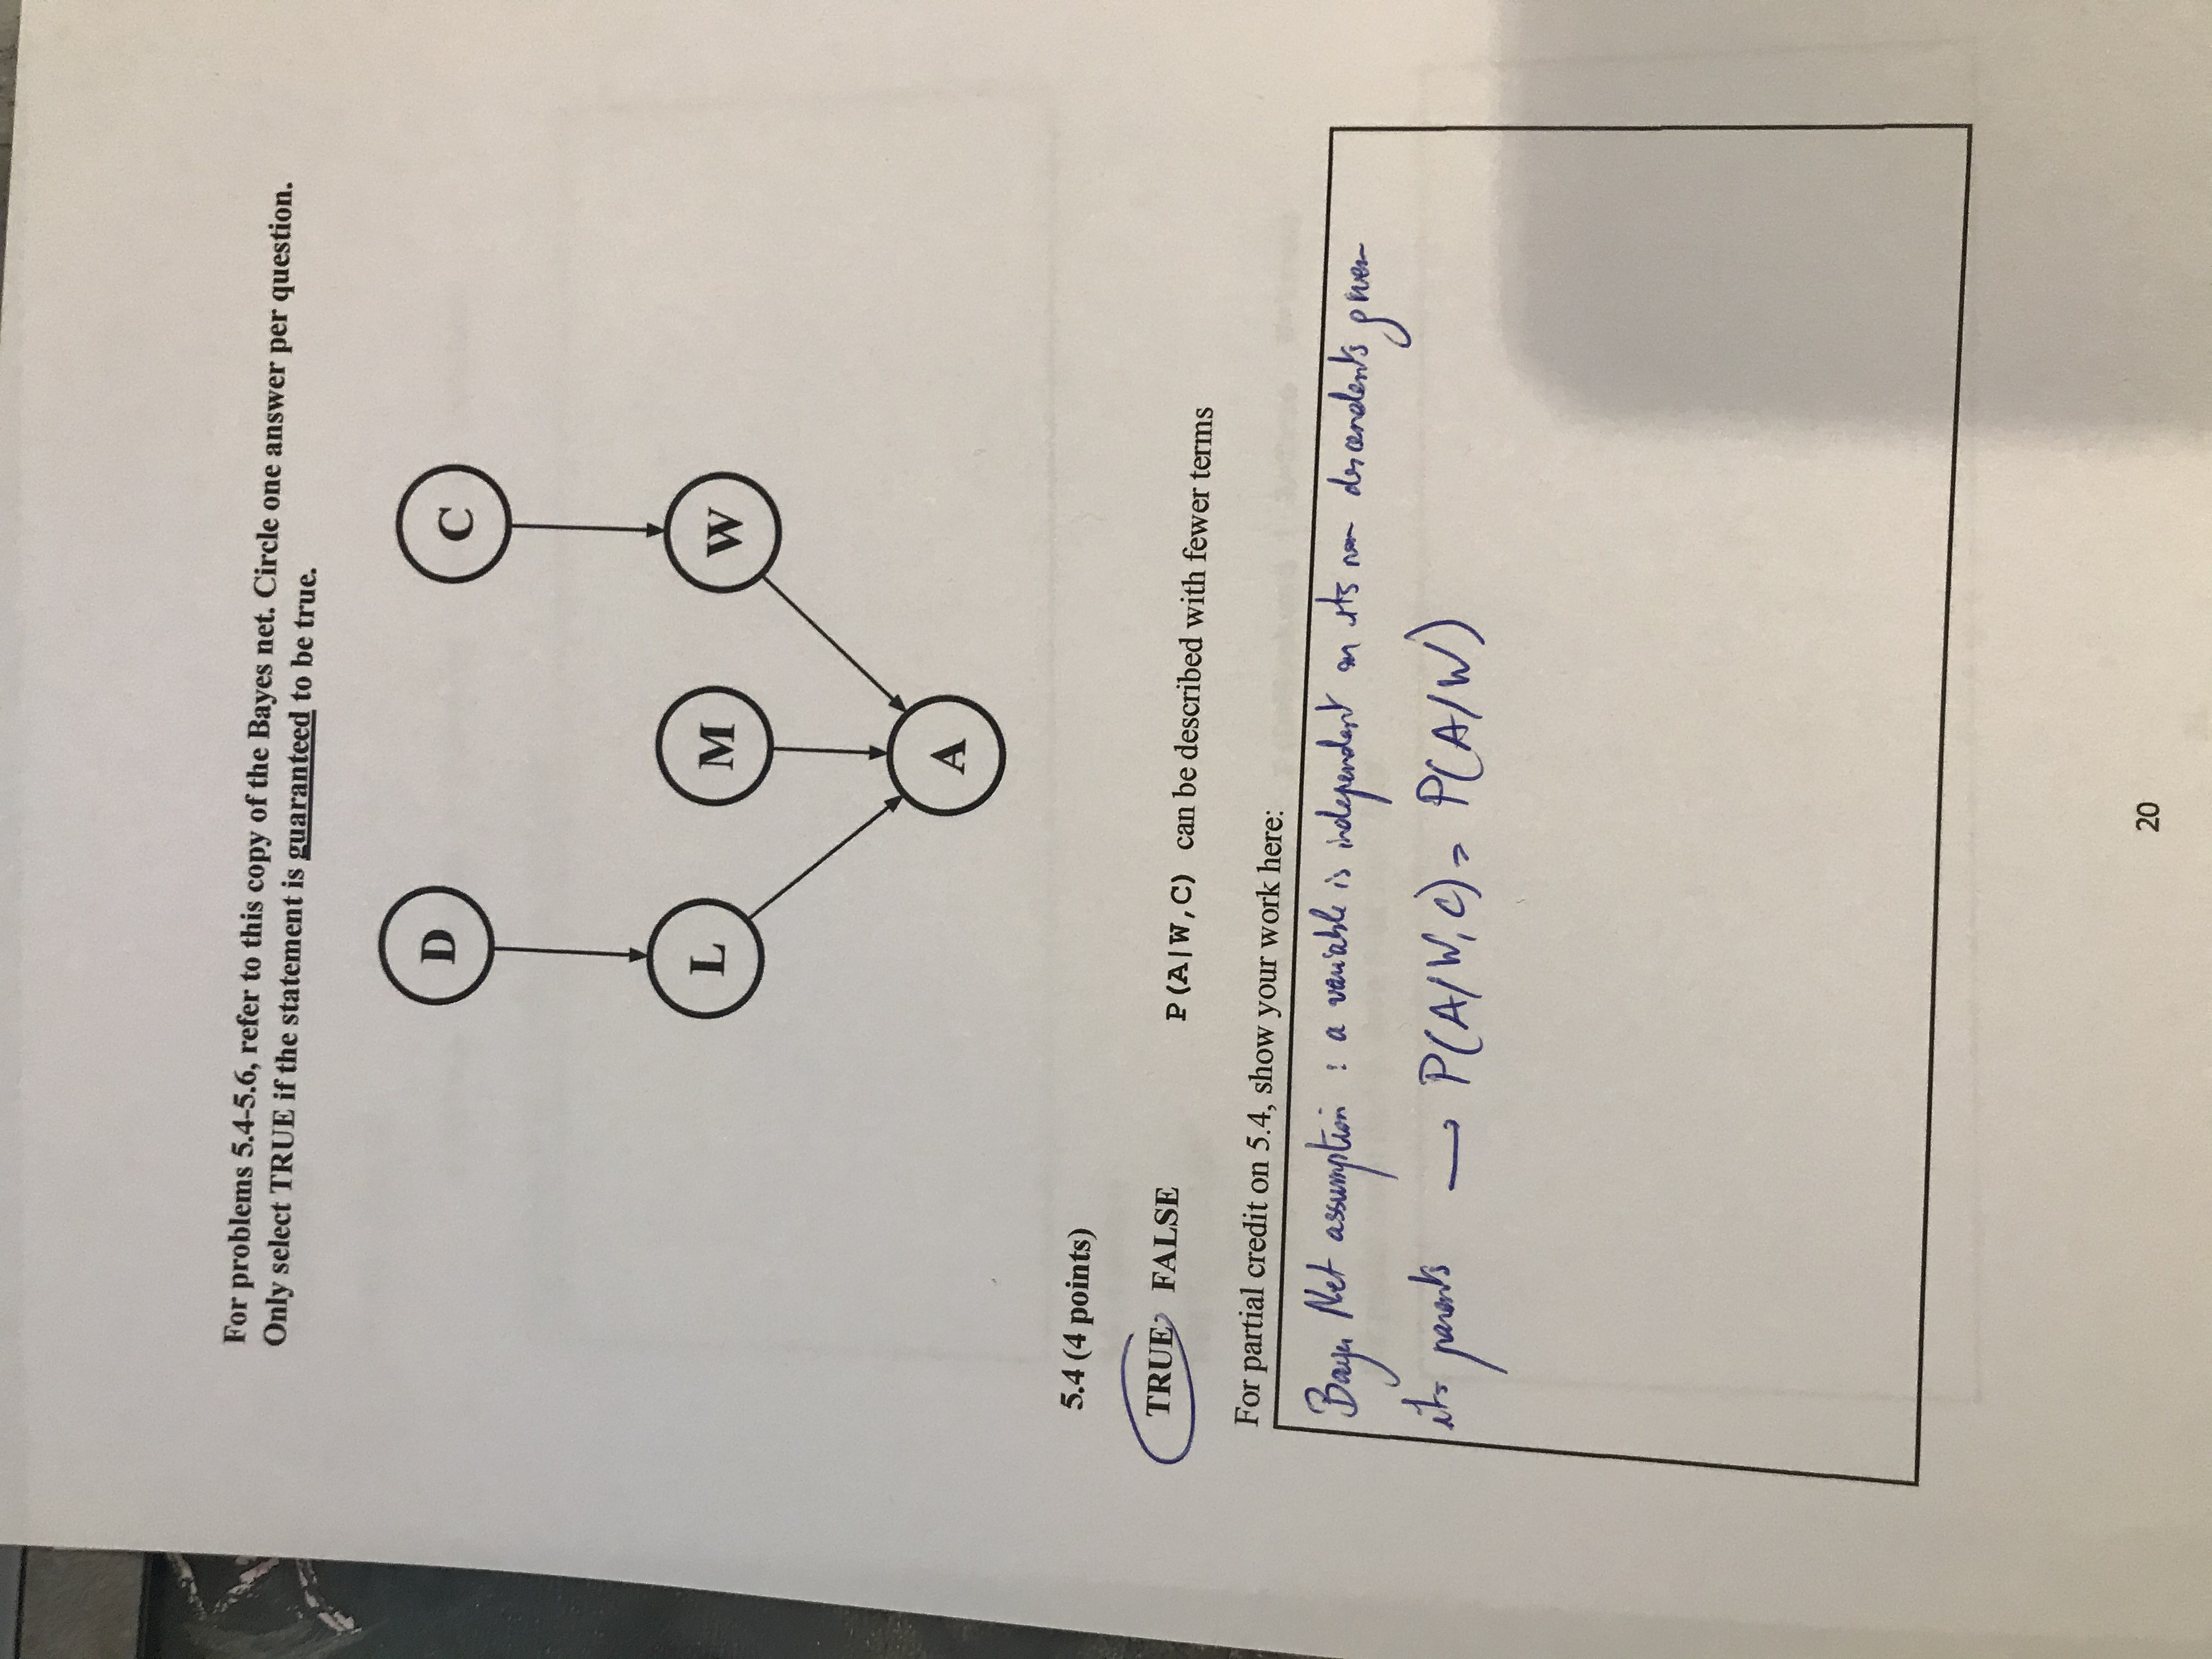 For problems 5.4-5.6, refer to this copy of the Bayes net. Circle one answer per question.
Only select TRUE if the statement is guaranteed to be true.
D
C
L
M
W
A
5.4 (4 points)
TRUE FALSE P(A|W,C) can be described with fewer terms
For partial credit on 5.4, show your work here:
Bayes Net assumption : a variable is independent on its non descendents given
its parents → P(A/W,C) = P(A/W)
20